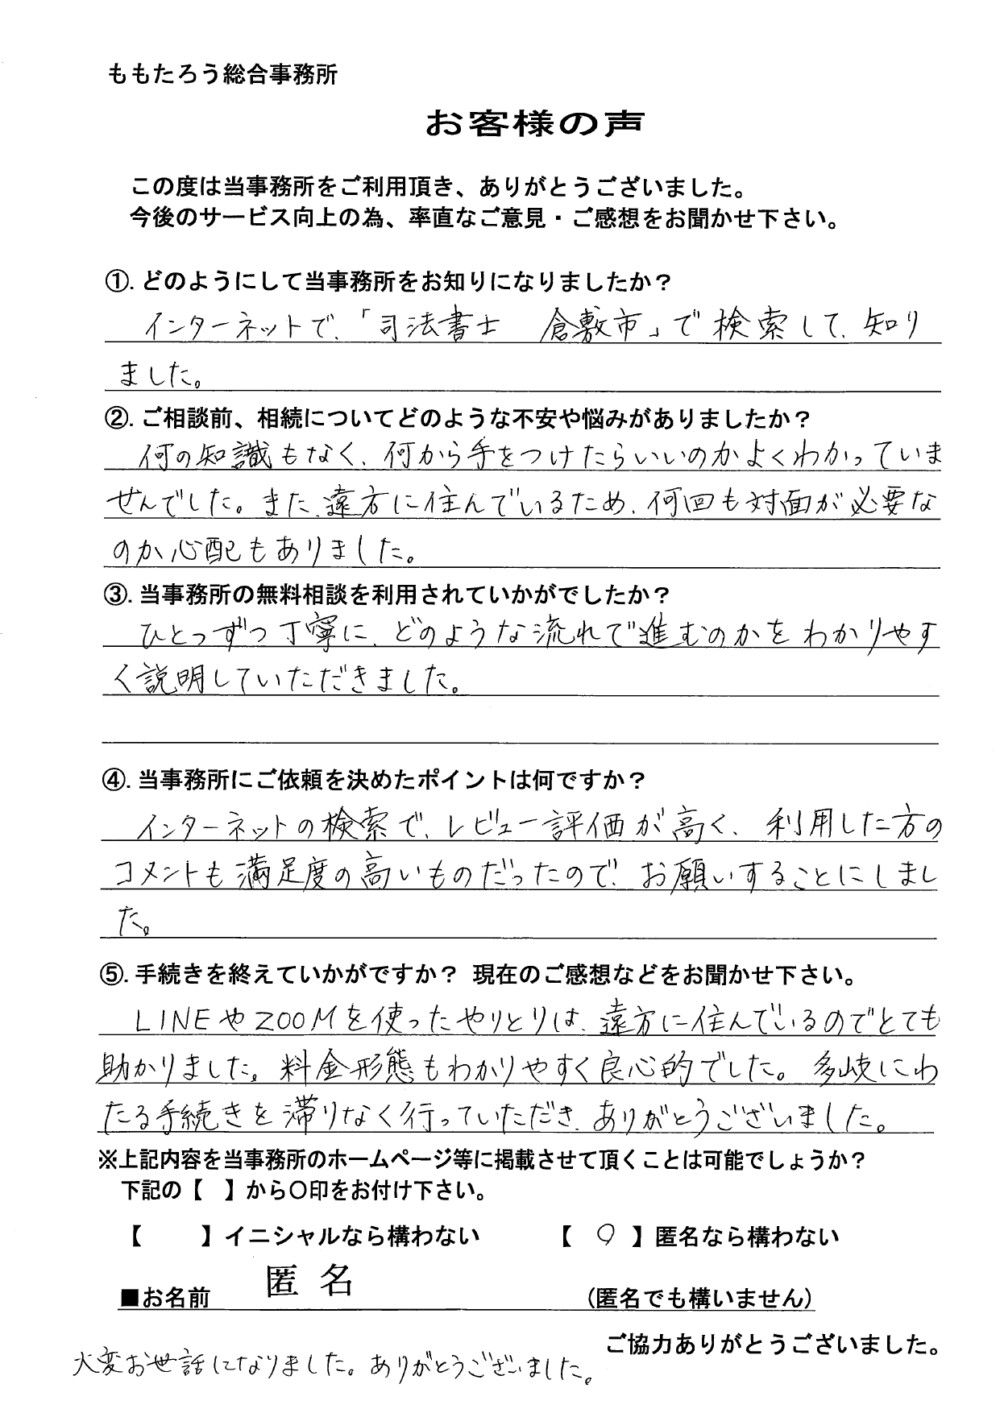 ももたろう総合事務所
お客様の声
この度は当事務所をご利用頂き、ありがとうございました。
今後のサービス向上の為、率直なご意見・ご感想をお聞かせ下さい。
①. どのようにして当事務所をお知りになりましたか？
インターネットで、「司法書士　倉敷市」で検索して、知り
ました。
②. ご相談前、相続についてどのような不安や悩みがありましたか？
何の知識もなく、何から手をつけたらいいのかよくわかっていま
せんでした。また、遠方に住んでいるため、何回も対面が必要な
のか心配もありました。
③. 当事務所の無料相談を利用されていかがでしたか？
ひとつずつ丁寧に、どのような流れで進むのかをわかりやす
く説明していただきました。
④. 当事務所にご依頼を決めたポイントは何ですか？
インターネットの検索で、レビュー評価が高く、利用した方の
コメントも満足度の高いものだったので、お願いすることにしまし
た。
⑤. 手続きを終えていかがですか？ 現在のご感想などをお聞かせ下さい。
LINEやZOOMを使ったやりとりは、遠方に住んでいるのでとても
助かりました。料金形態もわかりやすく良心的でした。多岐にわ
たる手続きを滞りなく行っていただき、ありがとうございました。
※上記内容を当事務所のホームページ等に掲載させて頂くことは可能でしょうか？
下記の【　】から〇印をお付け下さい。
【　　】イニシャルなら構わない　　【 〇 】匿名なら構わない
■お名前　匿 名　　(匿名でも構いません)
ご協力ありがとうございました。
大変お世話になりました。ありがとうございました。